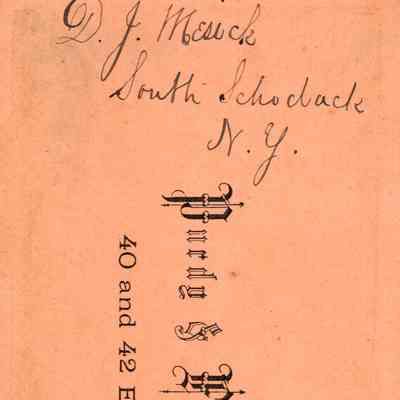 D. J. Mesick
South Schodack
N. Y.
Purdy &
40 and 42 E